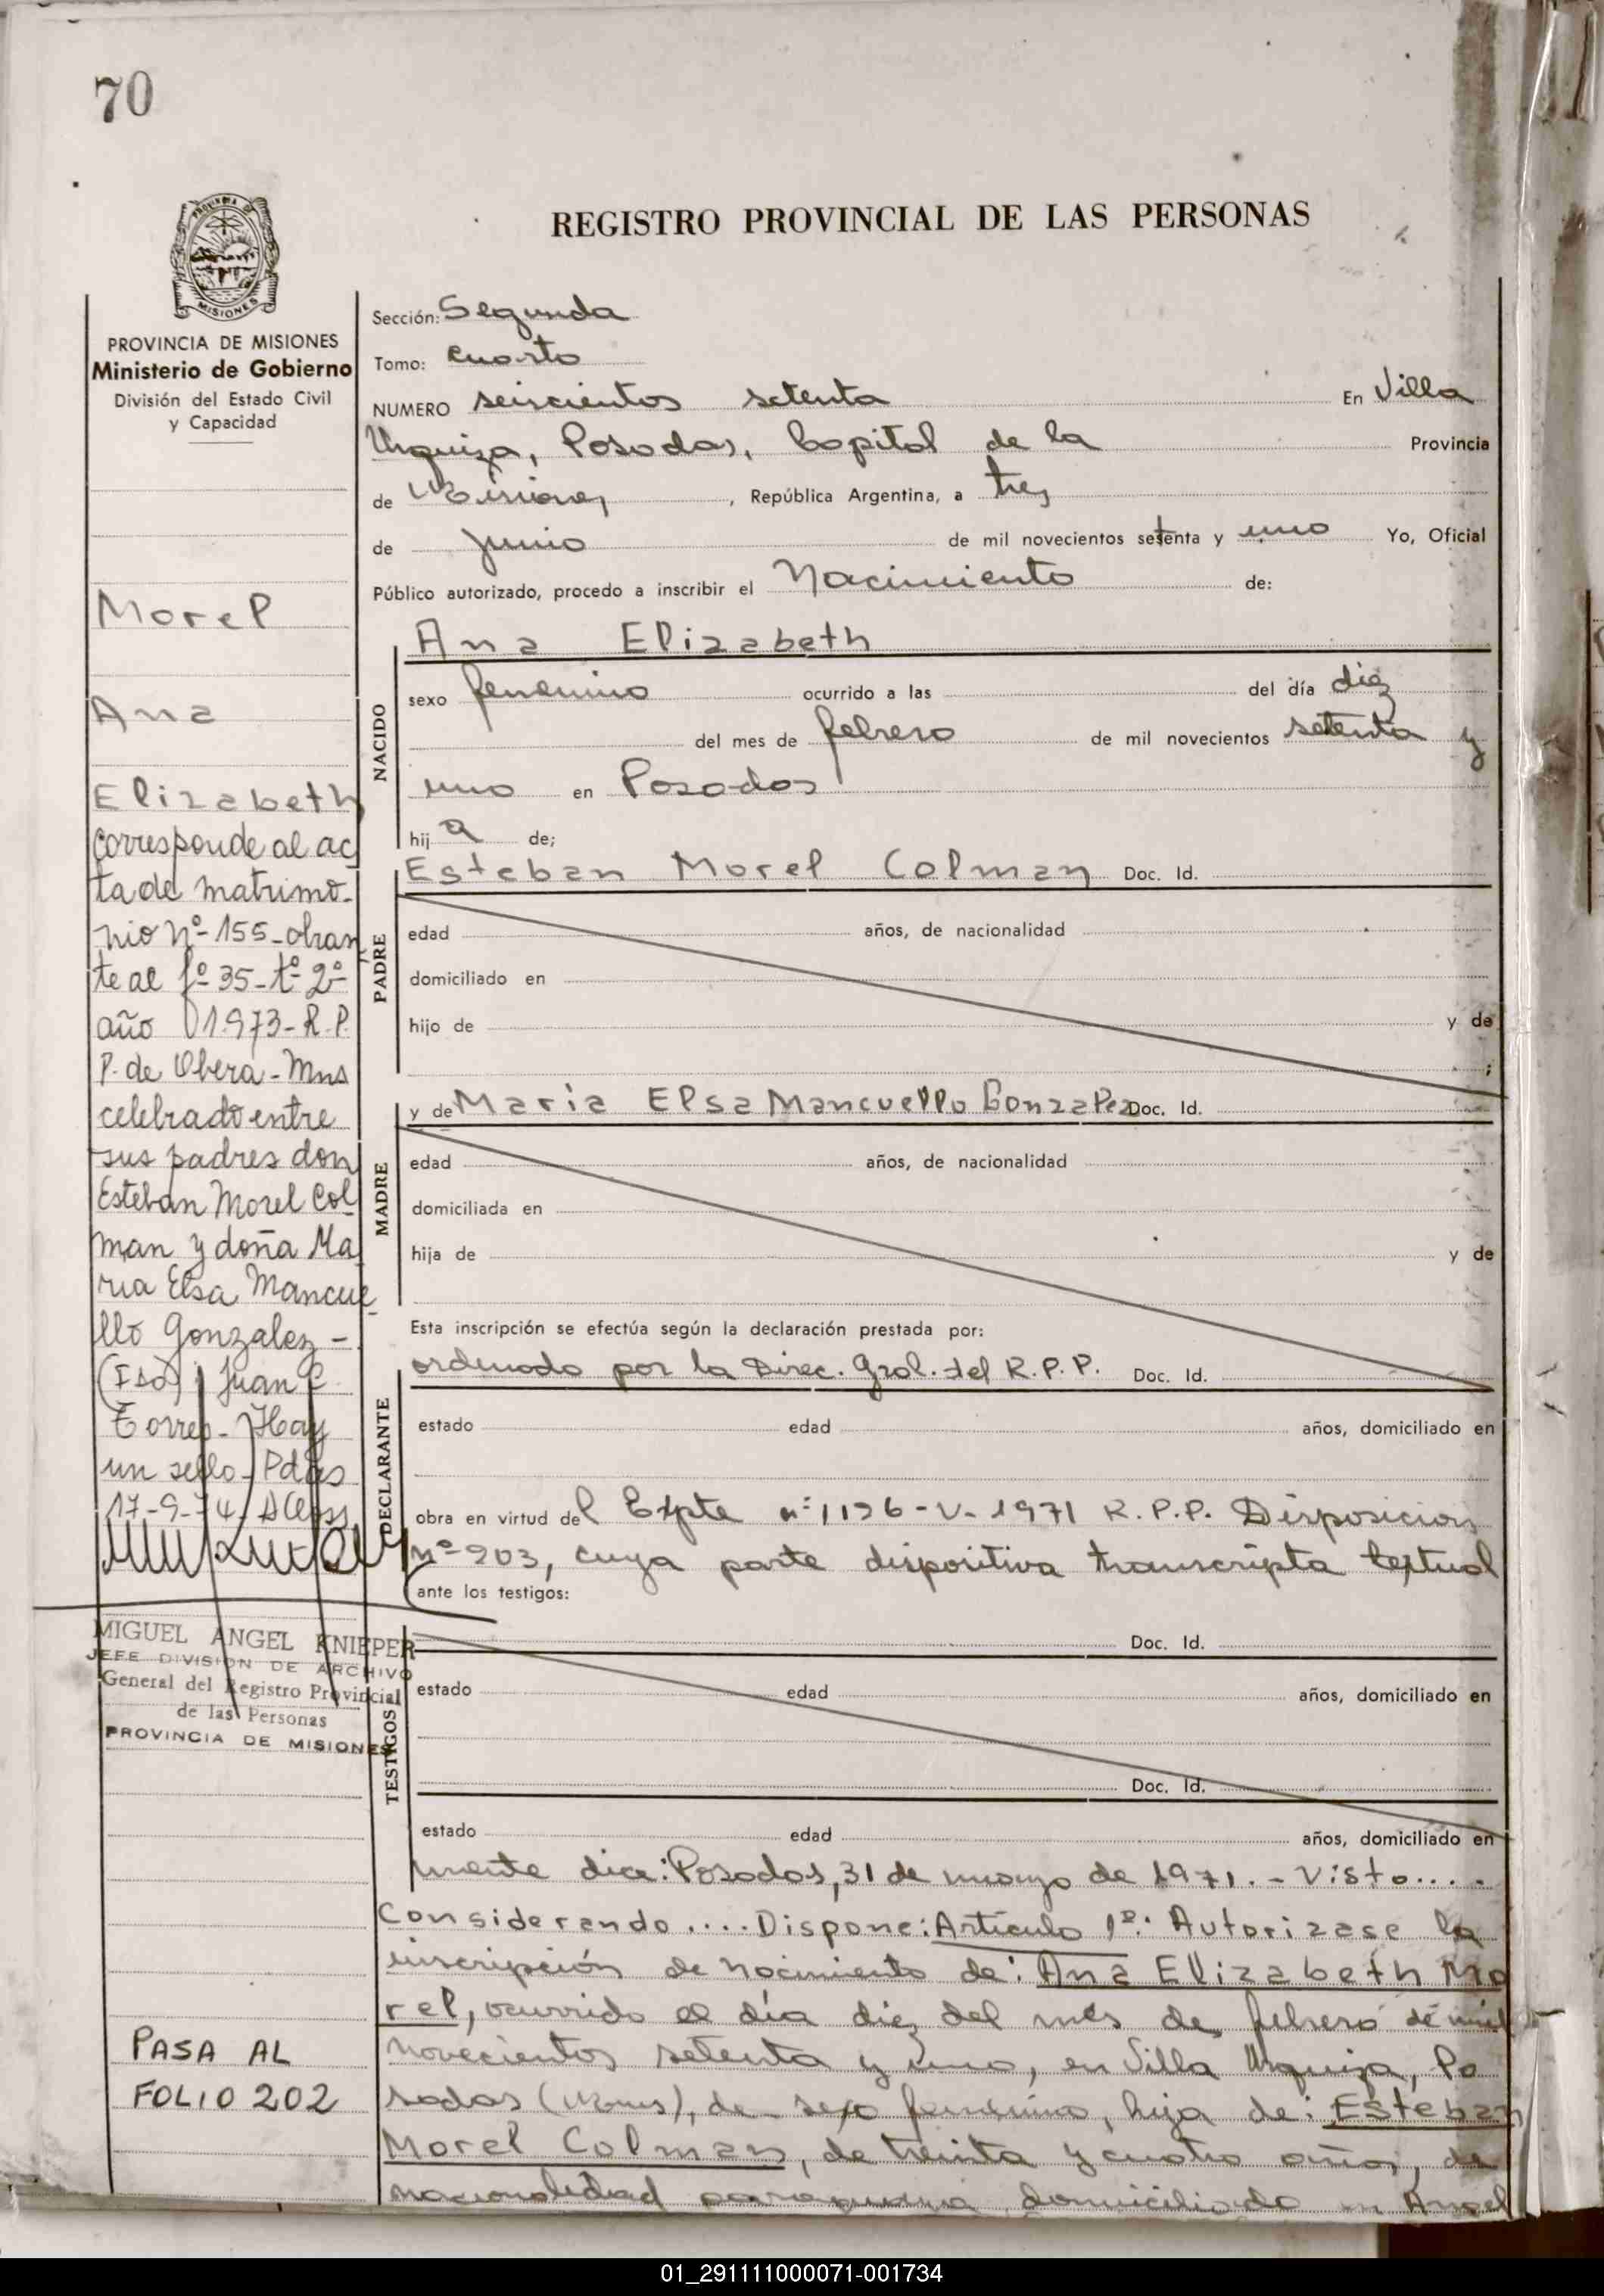 70
REGISTRO PROVINCIAL DE LAS PERSONAS
PROVINCIA DE
MISIONES
PROVINCIA DE MISIONES
Ministerio de Gobierno
División del Estado Civil
y Capacidad
Morel
Ana
Elizabeth
corresponde al ac
ta de matrimo-
nio Nº 155-obran
te al fº 35-tº 2º
año 1973-R.P.
P. de Obera-Mns
celebrado entre
sus padres don
Esteban Morel Col
man y doña Ma
ria Elsa Mancue
llo Gonzalez -
(Fdo) Juan C.
Torres - Hay
un sello - Pdas
17-9-74
MIGUEL ANGEL KNIEPER
JEFE DIVISION DE ARCHIVO
General del Registro Provincial
de las Personas
PROVINCIA DE MISIONES
PASA AL
FOLIO 202
Sección: Segunda
Tomo: cuarto
NUMERO seiscientos setenta En Villa
Urquiza, Posadas, Capital de la Provincia
de Misiones, República Argentina, a tres
de junio de mil novecientos setenta y uno Yo, Oficial
Público autorizado, procedo a inscribir el Nacimiento de:
NACIDO
Ana Elizabeth
sexo femenino ocurrido a las del día diez
del mes de febrero de mil novecientos setenta y
uno en Posadas
hija de;
PADRE
Esteban Morel Colman Doc. Id.
edad años, de nacionalidad
domiciliado en
hijo de y de
;
MADRE
y de Maria Elsa Mancuello Gonzalez Doc. Id.
edad años, de nacionalidad
domiciliada en
hija de y de
Esta inscripción se efectúa según la declaración prestada por:
DECLARANTE
ordenado por la Direc. Gral. del R.P.P. Doc. Id.
estado edad años, domiciliado en
obra en virtud del Expte nº 1126-V-1971 R.P.P. Disposicion
nº 903, cuya parte dispositiva transcripta textual
ante los testigos:
TESTIGOS
Doc. Id.
estado edad años, domiciliado en
Doc. Id.
estado edad años, domiciliado en
mente dice: Posadas, 31 de marzo de 1971.- Visto....
Considerando .... Dispone: Artículo 1º: Autorizase la
inscripción de nacimiento de: Ana Elizabeth Mo
rel, ocurrido el día diez del mes de febrero de mil
novecientos setenta y uno, en Villa Urquiza, Po
sadas (Mnes), de sexo femenino, hija de: Esteban
Morel Colman, de treinta y cuatro años, de
nacionalidad paraguaya, domiciliado en Angel
01_291111000071-001734